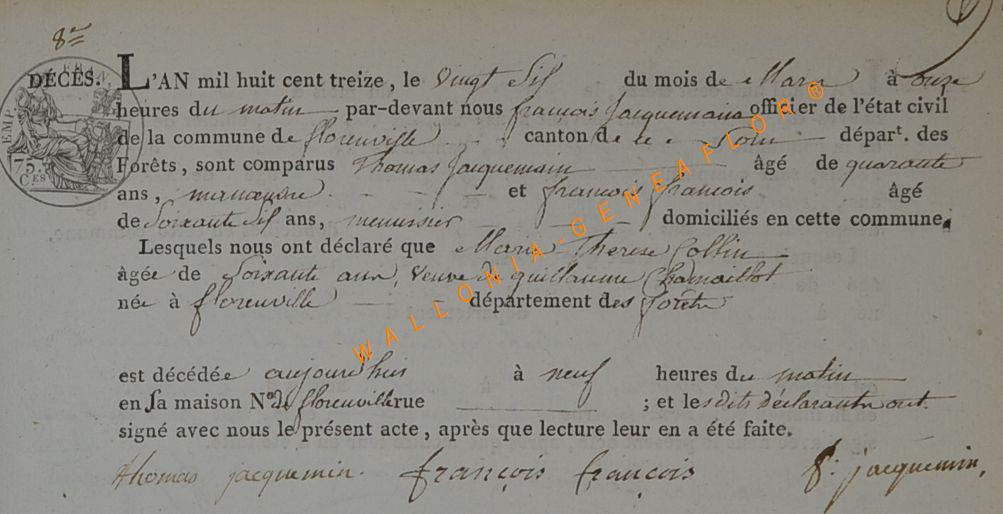 8e
DÉCÈS. L'AN mil huit cent treize, le vingt Six du mois de Mars à onze
heures du matin par-devant nous francois Jacquemain officier de l'état civil
de la commune de florenville canton de départ. des
Forêts, sont comparus Thomas Jacquemain âgé de quarante
ans, manoeuvre et francois francois âgé
de Soixante Six ans, menuisier domiciliés en cette commune.
Lesquels nous ont déclaré que Marie Therese Collin
âgée de Soixante ans, veuve de guillaume
née à florenville département des forêts
est décédée aujourdhuis à neuf heures du matin
en sa maison No. de florenville rue ; et les dits déclarants ont
signé avec nous le présent acte, après que lecture leur en a été faite.
thomas jacquemin. françois françois f. jacquemin,
EMP.
75.
CES
WALLONIA-GENEAFLOR®